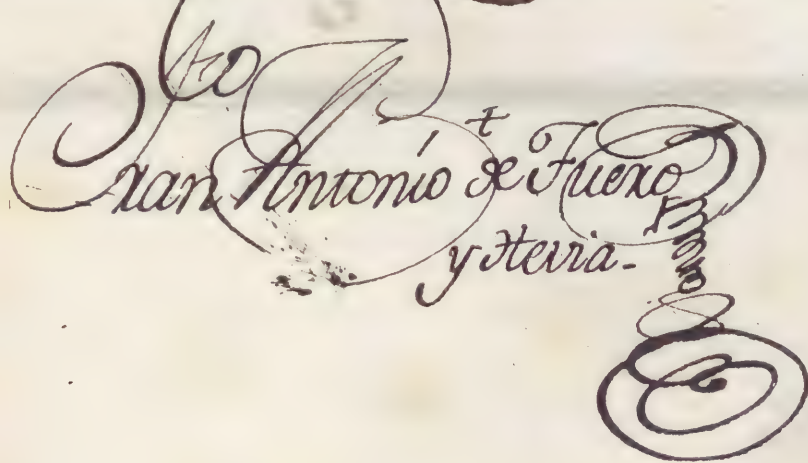 Fran.co Antonio t de Fuero
y Hevia.